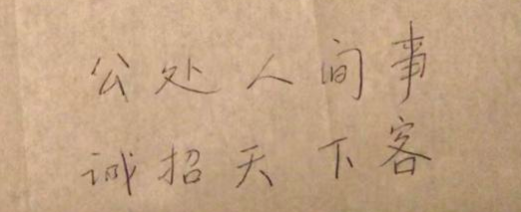 公处人间事
诚招天下客